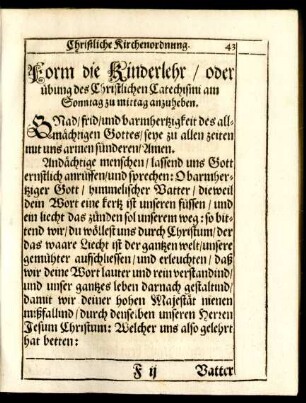 Christliche Kirchenordnung. 43
Form die Kinderlehr / oder
übung des Christlichen Catechismi am
Sonntag zu mittag anzuheben.
GNad/frid/und barmhertzigkeit des all-
mächtigen Gottes/seye zu allen zeiten
mit uns armen sünderen/Amen.
Andächtige menschen/lassend uns Gott
ernstlich anrüffen/und sprechen: O barmher-
tziger Gott/himmelischer Vatter/dieweil
dein Wort eine kertz ist unseren füssen/und
ein liecht das zünden sol unserem weg: so bit-
tend wir/du wöllest uns durch Christum/der
das waare Liecht ist der gantzen welt/unsere
gemühter aufschliessen/und erleuchten/daß
wir deine Wort lauter und rein verstandind/
und unser gantzes leben darnach gestaltind/
damit wir deiner hohen Majestät nienen
mißfallind/durch denselben unseren Herren
Jesum Christum: Welcher uns also gelehrt
hat betten:
F ij Vatter